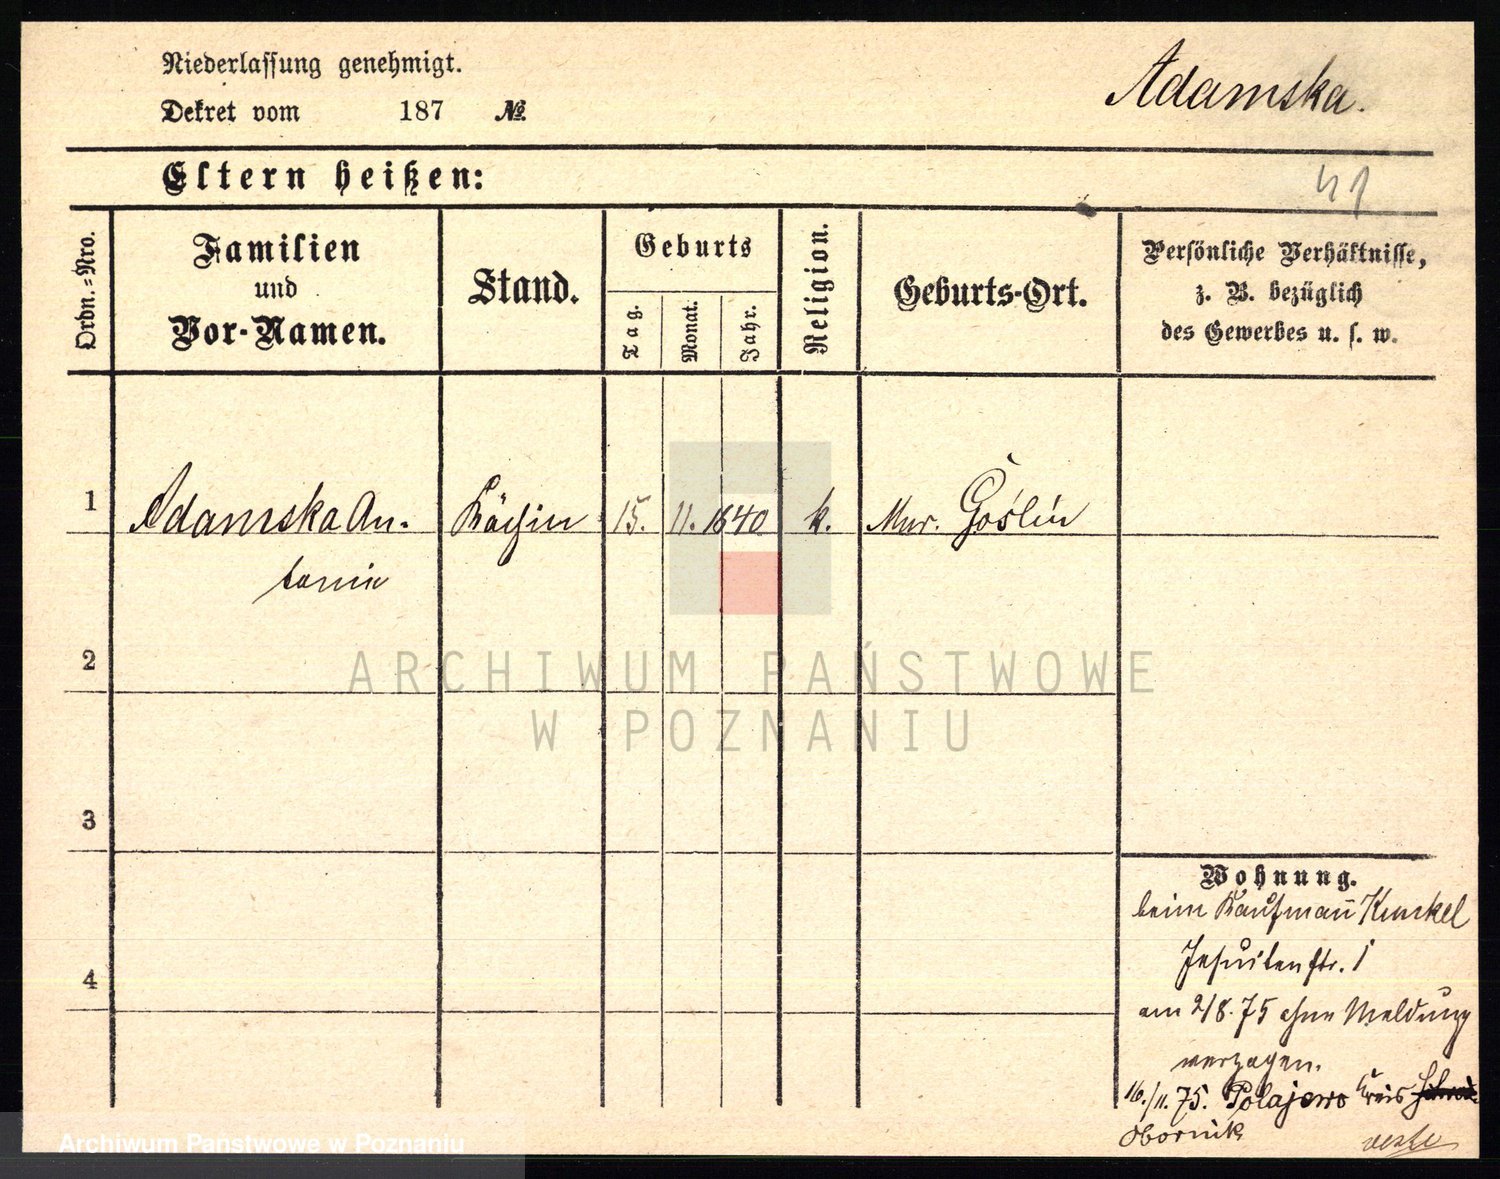 Niederlassung genehmigt.
Adamska.
Dekret vom 187 №
Eltern heißen:
41
Ordn.-Nro.
Familien
und
Vor-Namen.
Stand.
Geburts
Tag.
Monat.
Jahr.
Religion.
Geburts-Ort.
Persönliche Verhältnisse,
z. B. bezüglich
des Gewerbes u. s. w.
1 Adamska An- Köchin 15. 11. 1840 k. Mur. Goślin
tonie
2
ARCHIWUM PAŃSTWOWE
W POZNANIU
3
4
Wohnung.
beim Kaufmann Kunkel
Jesuitenstr. 1
am 2/8. 75 ohne Meldung
verzogen.
16./11. 75. Polajewo Kreis
Obornik
Archiwum Państwowe w Poznaniu